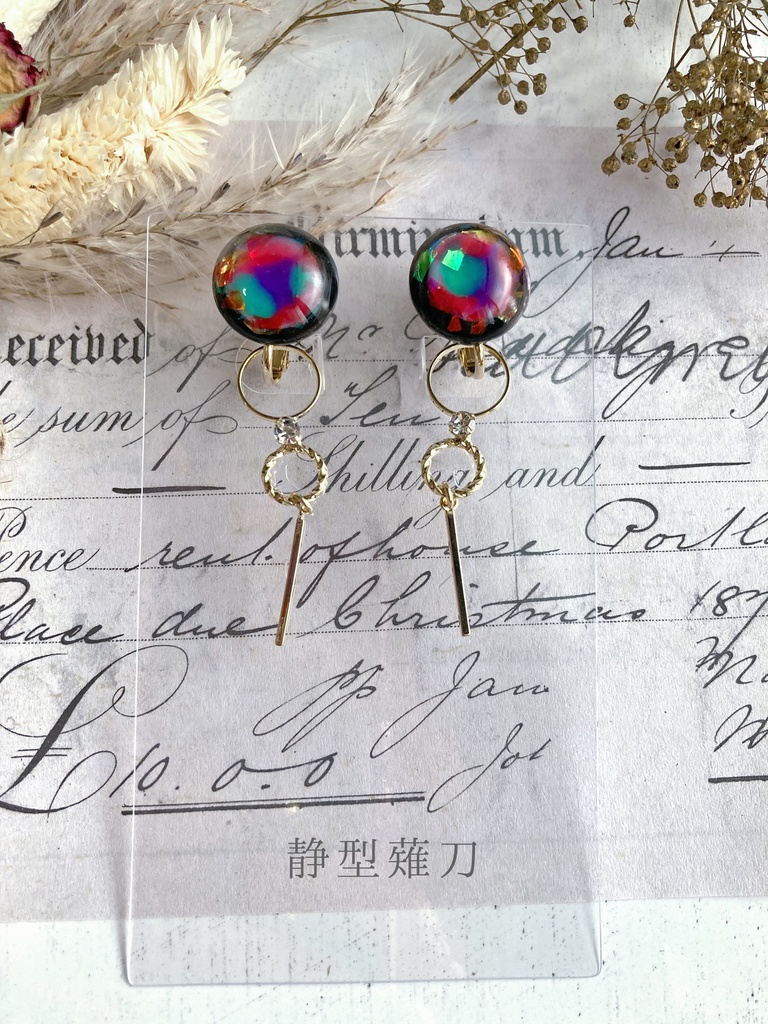 Birmingham, Jan
Received of Mr.
sum of Ten
Shillings and
Pence rent of house Portl
Place due Christmas 187
pp Jam
£10.0.0 Jo
静型薙刀